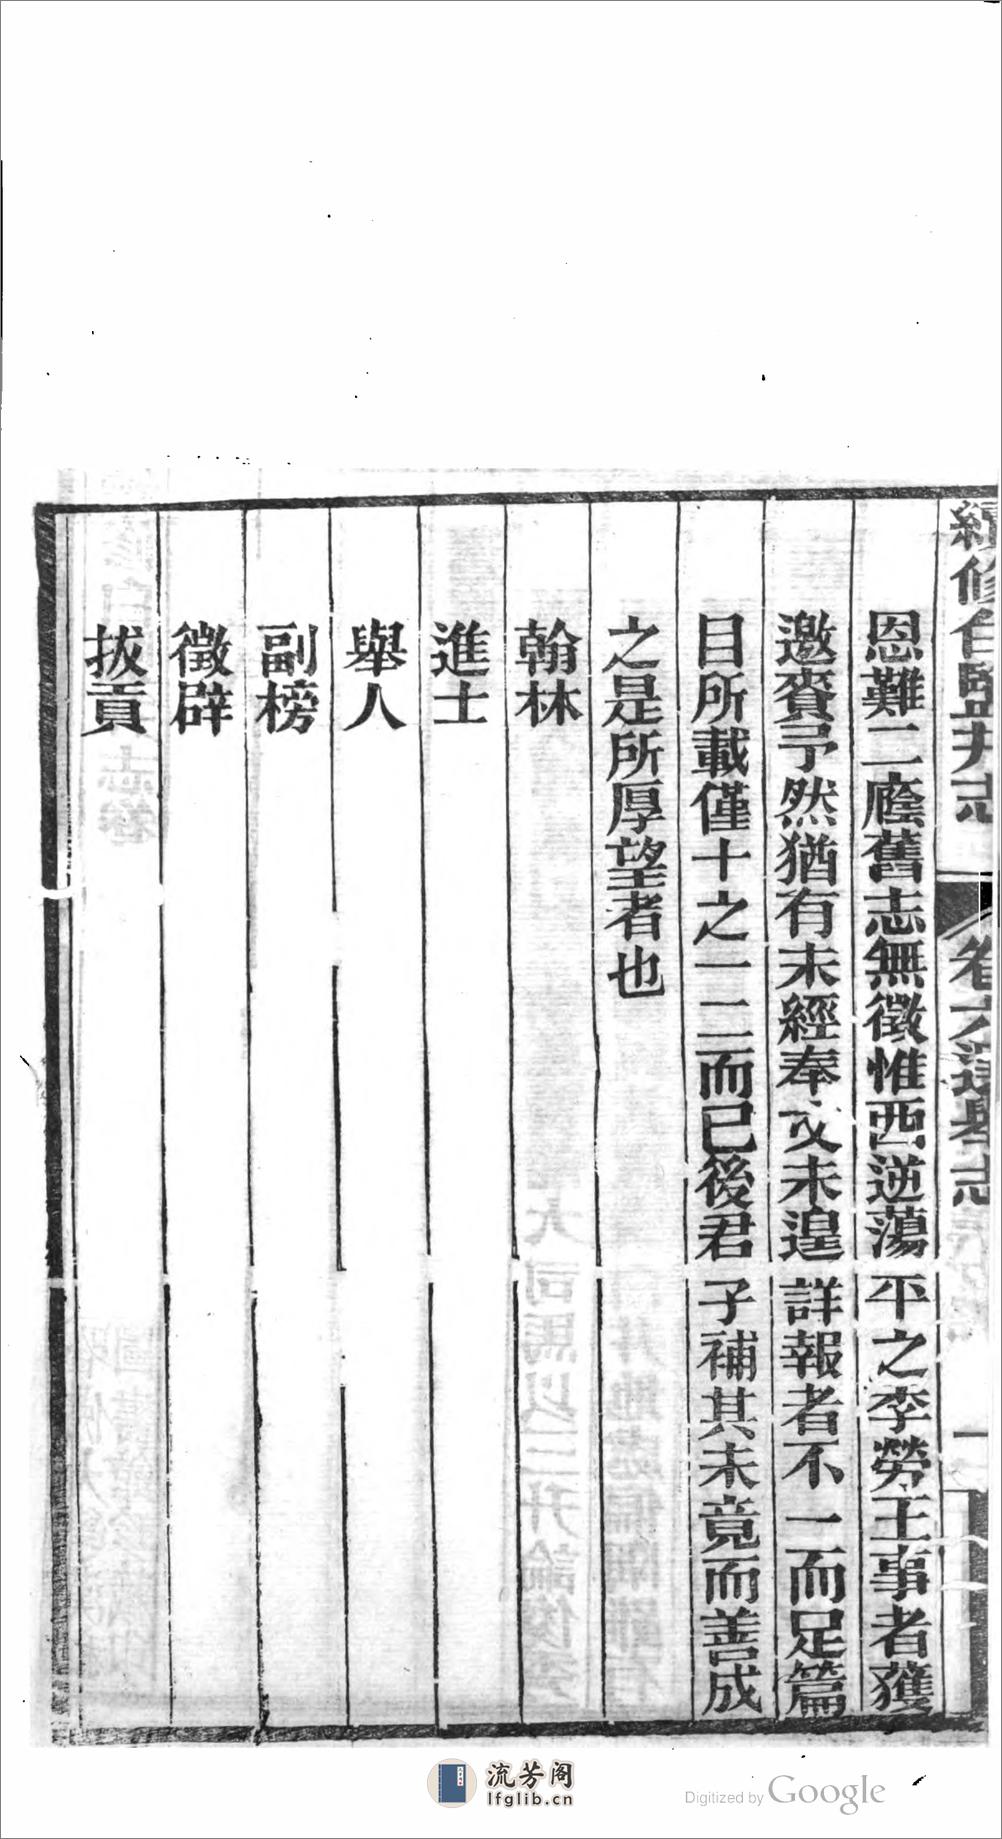 續修白鹽井志 卷六選舉志 一
恩難二廕舊志無徵惟西逆蕩平之季勞王事者獲
邀賚予然猶有未經奉文未遑詳報者不一而足篇
目所載僅十之一二而已後君子補其未竟而善成
之是所厚望者也
翰林
進士
舉人
副榜
徵辟
拔貢
流芳阁
lfglib.cn
Digitized by Google